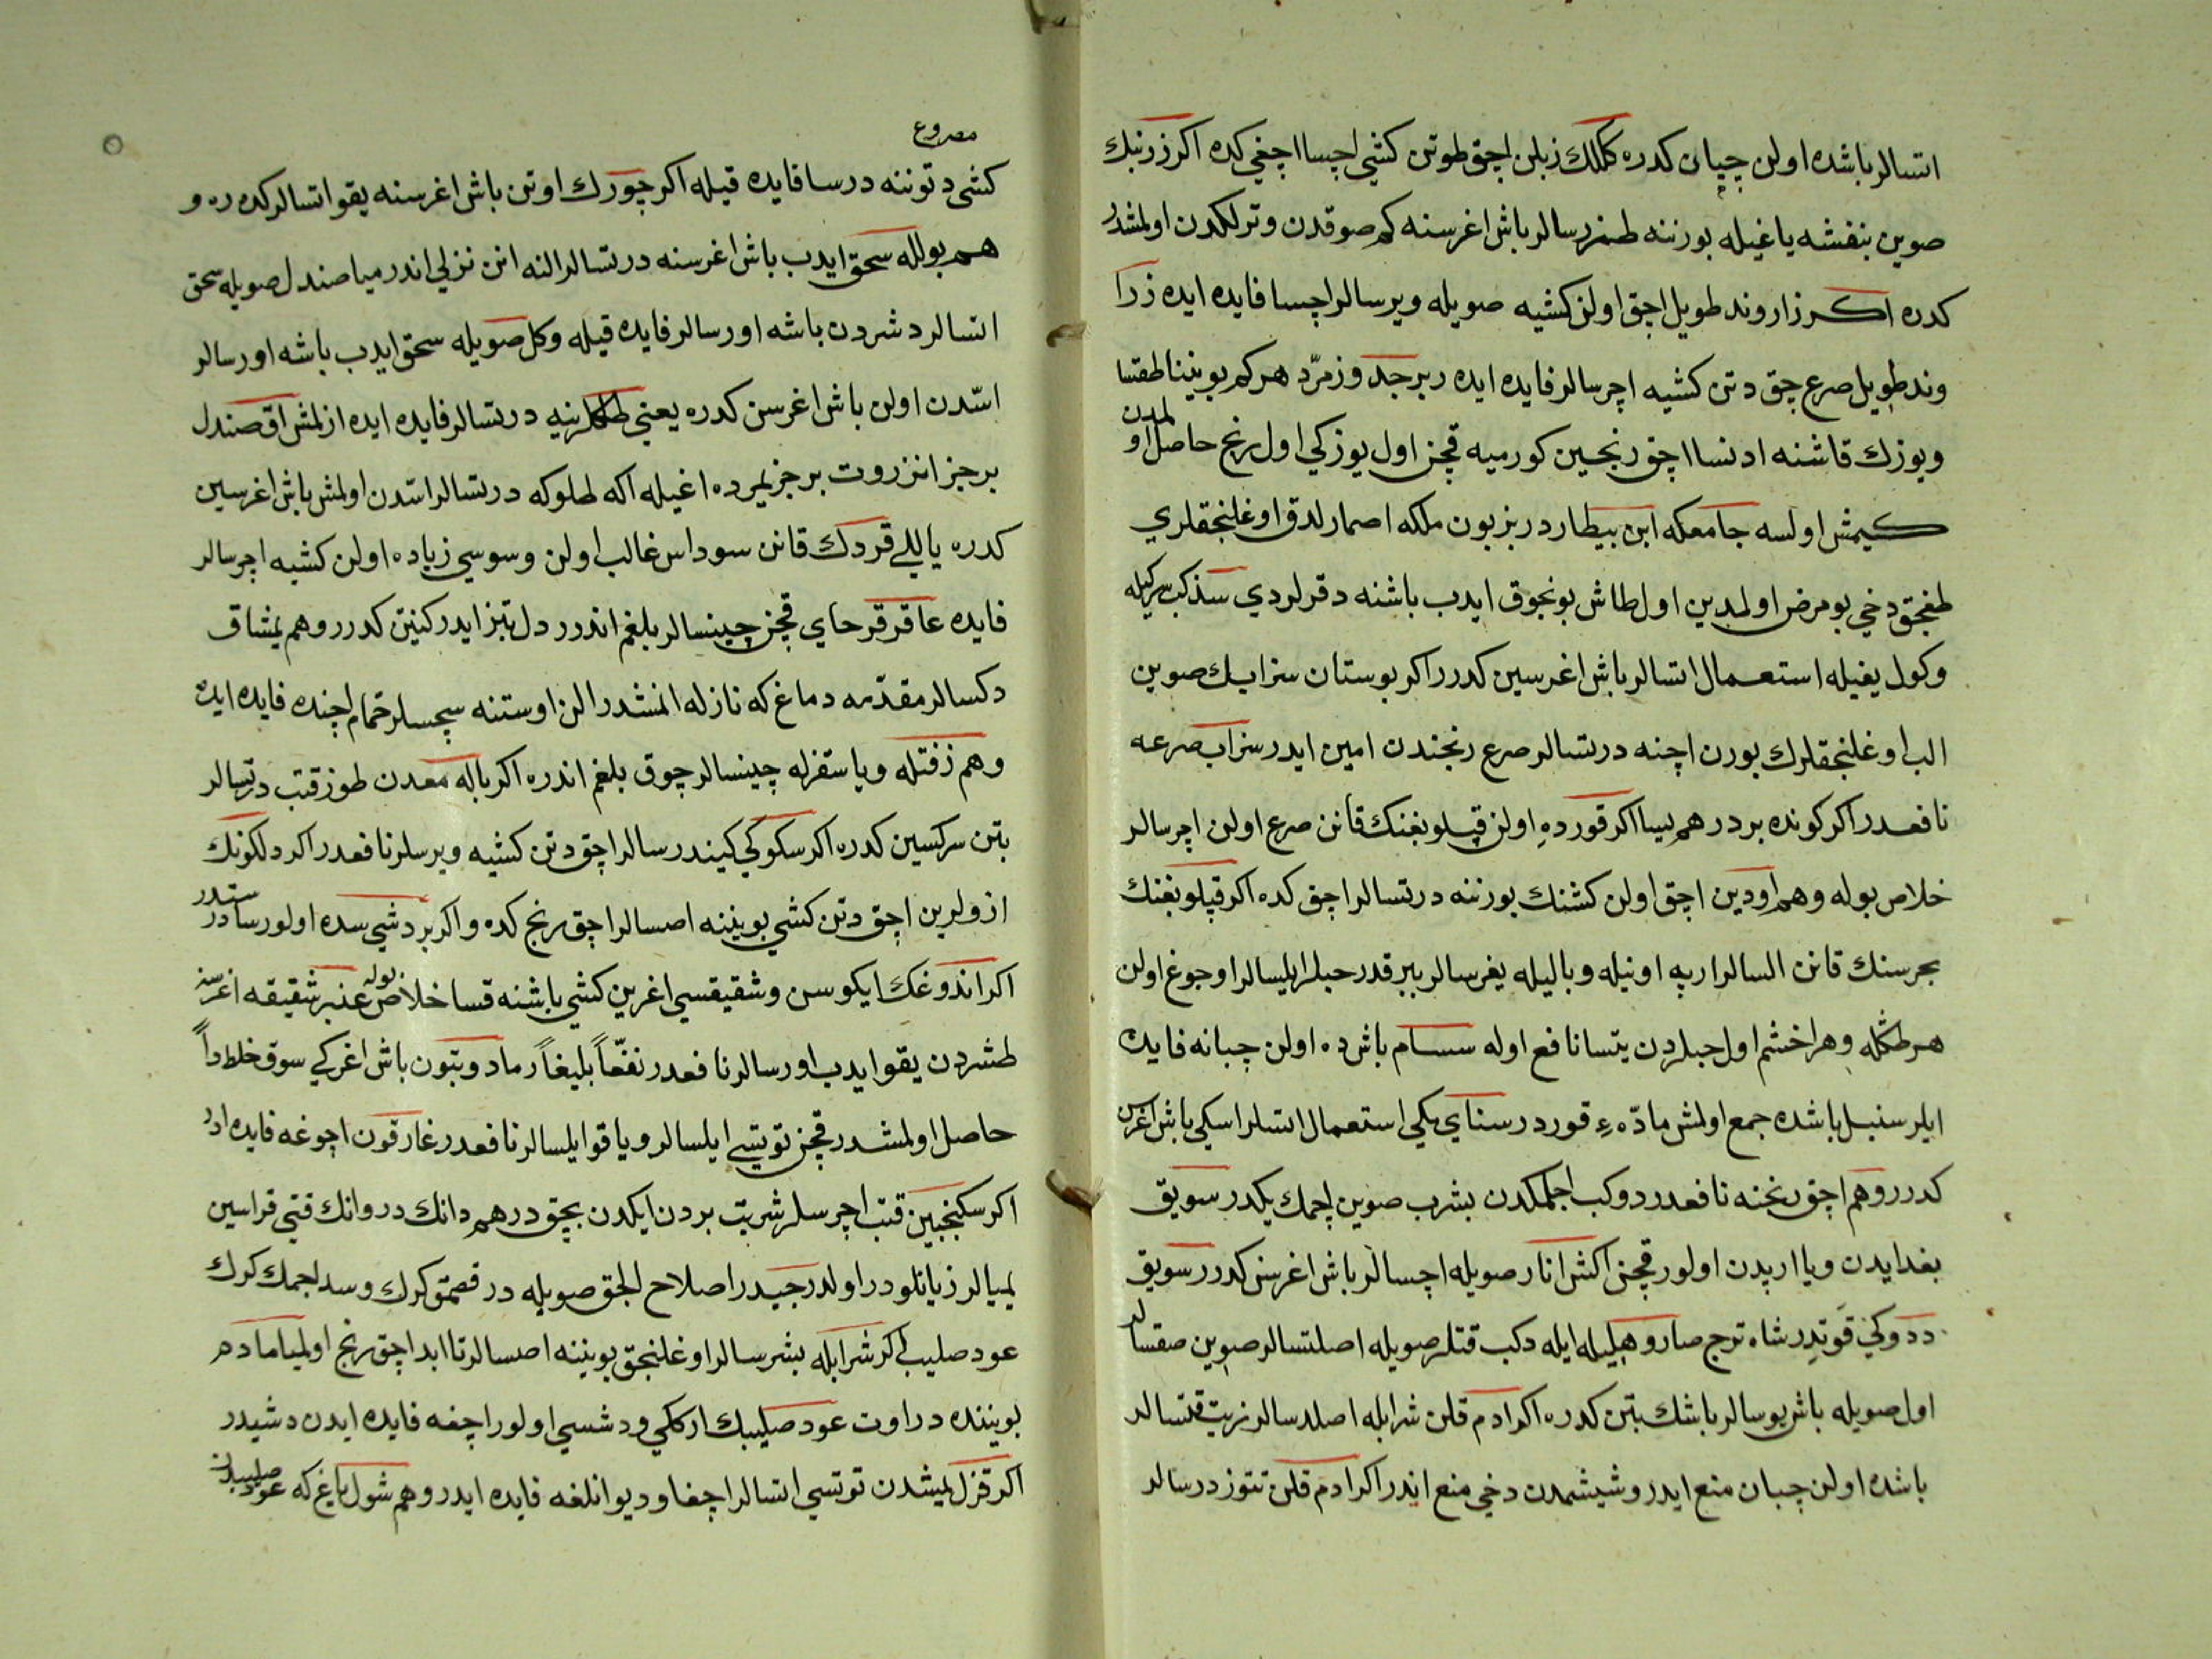 اتسالر باشده اولن چپان كدره كملك زبلن اچق طوتن كشي اچسا اچغي كده اكر زرنبك
صوين بنفشه ياغيله بورننه طمزرسالر باش اغرسنه كم صوقدن وترلكدن اولمشدر
كدره اكر زراوند طويل اچق اولن كشيه صويله ويرسالر اچسا فايده ايده زرا
وند طويل صرع چق دتن كشيه اچرسالر فايده ايده زبرجد وزمرّد هركم بوينيناطقتسا
ويوزك قاشنه ادنسا اچق رنجين كورميه قچن اول يوزكي اول رنج حاصل اولمدن
كيمش اولسه جامعكه ابن بيطاردر بز بون ملكه اصمارلدق اوغلنجقلري
طغجق دخي بو مرض اولمدين اول طاش بونجوق ايدب باشنه دقرلردي سذكب سركيله
وكول يغيله استعمال اتسالر باش اغرسين كدرر اكر بوستان سزابك صوين
الب اوغلنجقلرك بورن اچنه درتسالر صرع رنجندن امين ايدر سزاب صرعه
نافعدر اكر كونده بر درهم يسا اكر قورده اولن قپلوبغنك قانن صرع اولن اچرسالر
خلاص بوله وهم اودين اچق اولن كشنك بورننه درتسالر اچق كده اكر قپلوبغنك
بحرسنك قانن السالر ارپه اونيله وباليله يغرسالر ببر قدر حبلر ايلسالر اوجوغ اولن
هر طشكله وهر اخشم اول حبلردن يتسا نافع اوله سسام باش ده اولن چبانه فايده
ايلر سنبل باشده جمع اولمش مادّه ء قورد رسناي مكي استعمال اتسلر اسكي باش اغرسن
كدرر وهم اچق رنجنه نافعدر دوكب اجملكدن بشرب صوين اچمك يكدر سويق
بغدايدن ويا اريدن اولور قچن اكشي انار صويله اچسالر باش اغرسن كدرر سويق
ددوكي قوتدر شاه ترج صارو هليله ايله دكب قتلر صويله اصلتسالر صوين صقسالر
اول صويله باش يوسالر باشك بتن كدره اكر ادم قلن شرابله اصلدسالر زيت قتسالر
باشده اولن چبان منع ايدر وشيشمدن دخي منع ايدر اكر ادم قلن تتوزدرسالر
مصروع
كشي د توننه درسا فايده قيله اكر چورك اوتن باش اغرسنه يقو اتسالر كده ره و
هم بولله سحق ايدب باش اغرسنه درتسالر النه انن نزلي اندرميا صندل صويله سحق
اتسالر دشردن باشه اورسالر فايده قيله وكل صويله سحق ايدب باشه اورسالر
اسّدن اولن باش اغرسن كدره يعني طملرينه درتسالر فايده ايده ازلمش اق صندل
برجز انزروت برجز يمرده اغيله اكه طلوكه درتسالر اسّدن اولمش باش اغرسين
كدره ياللي قردك قانن سوداس غالب اولن وسوسي زياده اولن كشيه اچرسالر
فايده عاقر قرحاي قچن چينسالر بلغم اندرر دل تيز ايدر كنين كدرر وهم يمشاق
دكسالر مقدّمه دماغ كه نازله انمشدر الن اوستنه سچسالر حمام اچنده فايده ايده
وهم زفتله ويا سقزله چينسالر چوق بلغم اندره اكر باله معدن طوز قتب درتسالر
بتن سركسين كدره اكر سكوكي كيندرسالر اچق دتن كشيه ويرسلر نافعدر اكر دلكونك
ازولرين اچق دتن كشي بويننه اصسالر اچق رنج كده واكر بر دشي سده اولورسا درستدر
اكر اندوغك ايكوسن وشقيقسي اغرين كشي باشنه قسا خلاص بوله عنبر شقيقه اغرسنه
طشردن يقو ايدب اورسالر نافعدر نفعّاً بليغاً رماد وبتون باش اغركي سوق خلط داً
حاصل اولمشدر قچن توتسي ايلسالر ويا قوايلسالر نافعدر غارقون اچوغه فايده ادر
اكر سكنجبين قتب اچرسلر شربت بردن ايكدن بچق درهم دانك دروانك قتي قراسين
يميالر زيانلودر اولدر جيدر اصلاح الجق صويله در قصمق كرك وسد اجمك كرك
عود صليب اكر شرابله بشرسالر اوغلنجق بويننه اصسالر تا ابد اچق رنج اولميا مادم
بويننده دراوت عود صليبك ارككي ودشسي اولور اچغه فايده ايدن دشيدر
اكر قزل يمشدن توتسي اتسالر اچغا وديوانلغه فايده ايدر وهم شول ياغ كه عود صليبدن